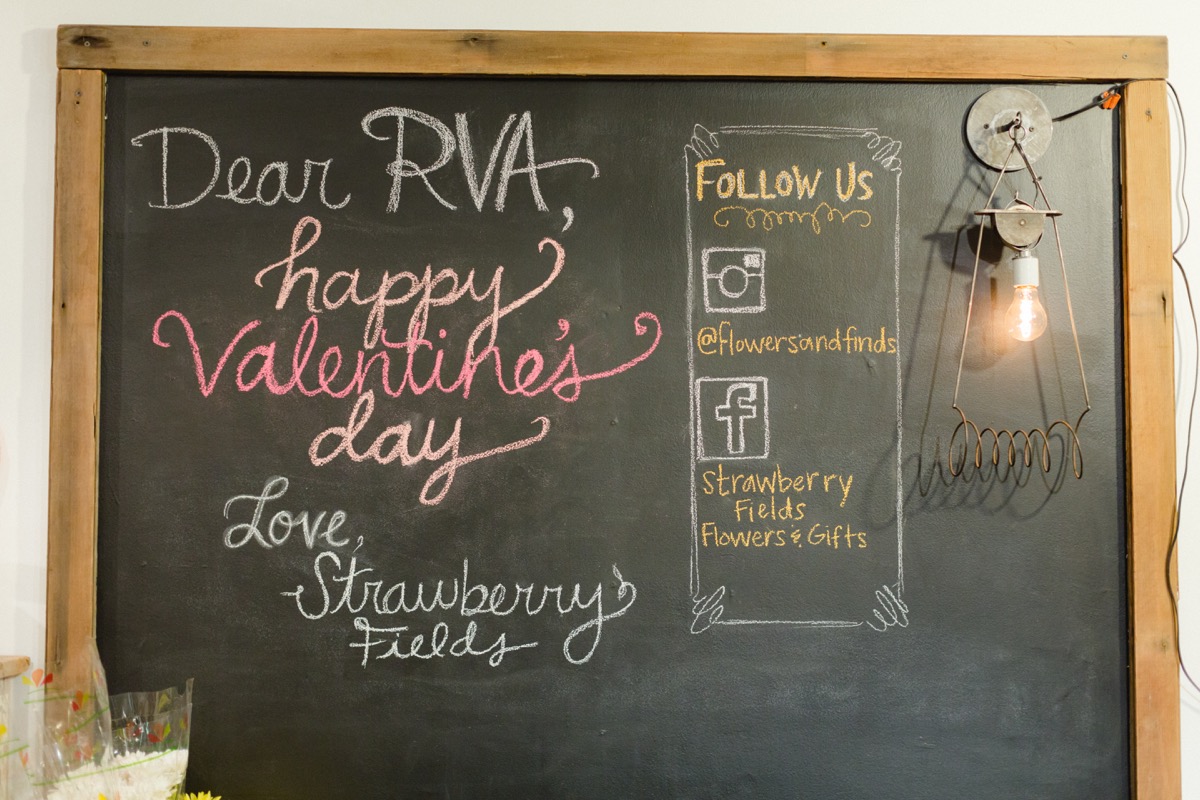 Dear RVA,
happy
Valentine's
day
Love,
Strawberry
Fields
Follow Us
@flowersandfinds
f
Strawberry
Fields
Flowers & Gifts